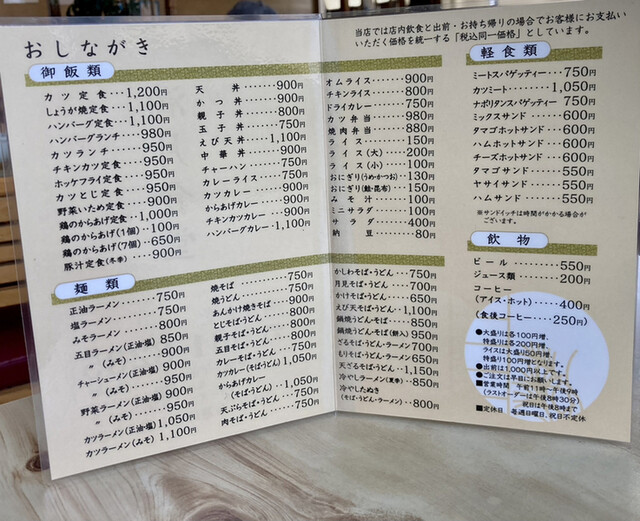 おしながき
当店では店内飲食と出前・お持ち帰りの場合でお客様にお支払い
いただく価格を統一する「税込同一価格」としています。
御飯類
カツ定食・・・1,200円
しょうが焼定食・・1,100円
ハンバーグ定食・・1,100円
ハンバーグランチ・・・980円
カツランチ・・・・950円
チキンカツ定食・・・・950円
ホッケフライ定食・・・950円
カツとじ定食・・・・950円
野菜いため定食・・・900円
鶏のからあげ定食・・1,000円
鶏のからあげ(1個)・・100円
鶏のからあげ(7個)・・650円
豚汁定食(冬季)・・・900円
天丼・・・・・・・900円
かつ丼・・・・・・900円
親子丼・・・・・・800円
玉子丼・・・・・・750円
えび天丼・・・・1,100円
中華丼・・・・・・900円
チャーハン・・・・・750円
カレーライス・・・・750円
カツカレー・・・・・900円
からあげカレー・・・900円
チキンカツカレー・・900円
ハンバーグカレー・・1,100円
オムライス・・・・・900円
チキンライス・・・・800円
ドライカレー・・・・750円
カツ弁当・・・・・980円
焼肉弁当・・・・・880円
ライス・・・・・・150円
ライス(大)・・・・200円
ライス(小)・・・・100円
おにぎり(うめ・かつお)・・130円
おにぎり(鮭・昆布)・・・150円
みそ汁・・・・・・100円
ミニサラダ・・・・・100円
サラダ・・・・・・400円
納豆・・・・・・・80円
麺類
正油ラーメン・・・・・750円
塩ラーメン・・・・・・750円
みそラーメン・・・・・800円
五目ラーメン(正油・塩)・・850円
〃(みそ)・・・900円
チャーシューメン(正油・塩)・・900円
〃(みそ)・・・950円
野菜ラーメン(正油・塩)・・900円
〃(みそ)・・・950円
カツラーメン(正油・塩)・・1,050円
カツラーメン(みそ)・・1,100円
焼そば・・・・・・・750円
焼うどん・・・・・・750円
あんかけ焼きそば・・・900円
とじそば・うどん・・・800円
親子そば・うどん・・・850円
五目そば・うどん・・・850円
カレーそば・うどん・・750円
カツカレー(そば・うどん)・1,050円
からあげカレー
(そば・うどん)・・1,050円
天ぷらそば・うどん・・750円
肉そば・うどん・・・・750円
かしわそば・うどん・・750円
月見そば・うどん・・・700円
かけそば・うどん・・・650円
えび天そば・うどん・・1,100円
鍋焼うどん・そば・・・850円
鍋焼うどん・そば(餅入)・・950円
ざるそば・うどん・ラーメン・・700円
もりそば・うどん・・・650円
天ざるそば・うどん・・1,150円
冷やしラーメン(夏季)・・850円
冷やしたぬき
(そば・うどん・ラーメン)・・800円
軽食類
ミートスパゲッティー・・750円
カツミート・・・・・1,050円
ナポリタンスパゲッティー 750円
ミックスサンド・・・・600円
タマゴホットサンド・・600円
ハムホットサンド・・・600円
チーズホットサンド・・600円
タマゴサンド・・・・・550円
ヤサイサンド・・・・・550円
ハムサンド・・・・・・550円
※サンドイッチは時間がかかる場合が
ございます。
飲物
ビール・・・・・・550円
ジュース類・・・・・200円
コーヒー
(アイス・ホット)・・・・400円
(食後コーヒー・・・・250円)
●大盛りは各100円増、
特盛りは各200円増。
ライスは大盛り50円増、
特盛り100円増となります。
●出前は1,000円以上です。
●ご注文は早目にお願いします。
■営業時間 午前11時~午後9時
(ラストオーダーは午後8時30分)
祝日は午後8時まで
■定休日 毎週日曜日、祝日不定休